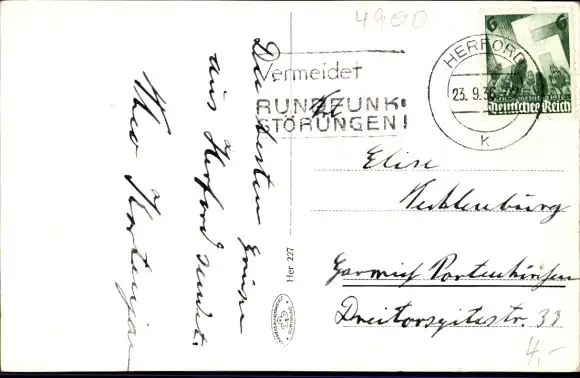 4900
6 6
Deutsches Reich
HERFORD
23.9.36
k
Vermeidet
RUNDFUNK-
STÖRUNGEN!
Die besten Grüsse
aus Herford sendet
Theo
Frl
Elise
Garmisch Partenkirchen
Dreitorspitzstr. 33
Her 227
4,-